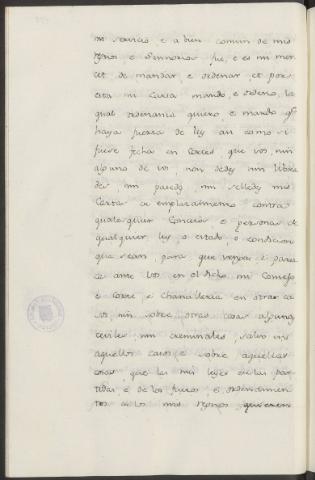 mi servicio, e a bien comun de mis
regnos e Sennorios fue, e es mi mer
cet de mandar, e ordenar, et por
esta mi Carta mando, e ordeno, la
qual ordenanza quiero, e mando qe
haya fuerza de ley asi como si
fuese fecha en Cortes que vos, nin
alguno de vos, non dedes nin libre
des, nin pasedes, nin selledes mis
Cartas de emplazamiento contra
qualesquier Concejos e personas de
qualquier ley, o estado, o condicion
que sean, para que vengan e paresc
ca ante vos en el dicho mi Consejo
e Corte, e Chancilleria en otros ca
sos, nin sobre otras cosas algunas
ceviles, nin creminales, salvo en
aquellos casos e sobre aquellas
cosas, que las mis leyes de las par
tidas, e de los fueros, e ordenamien
tos de los mis regnos quisieren